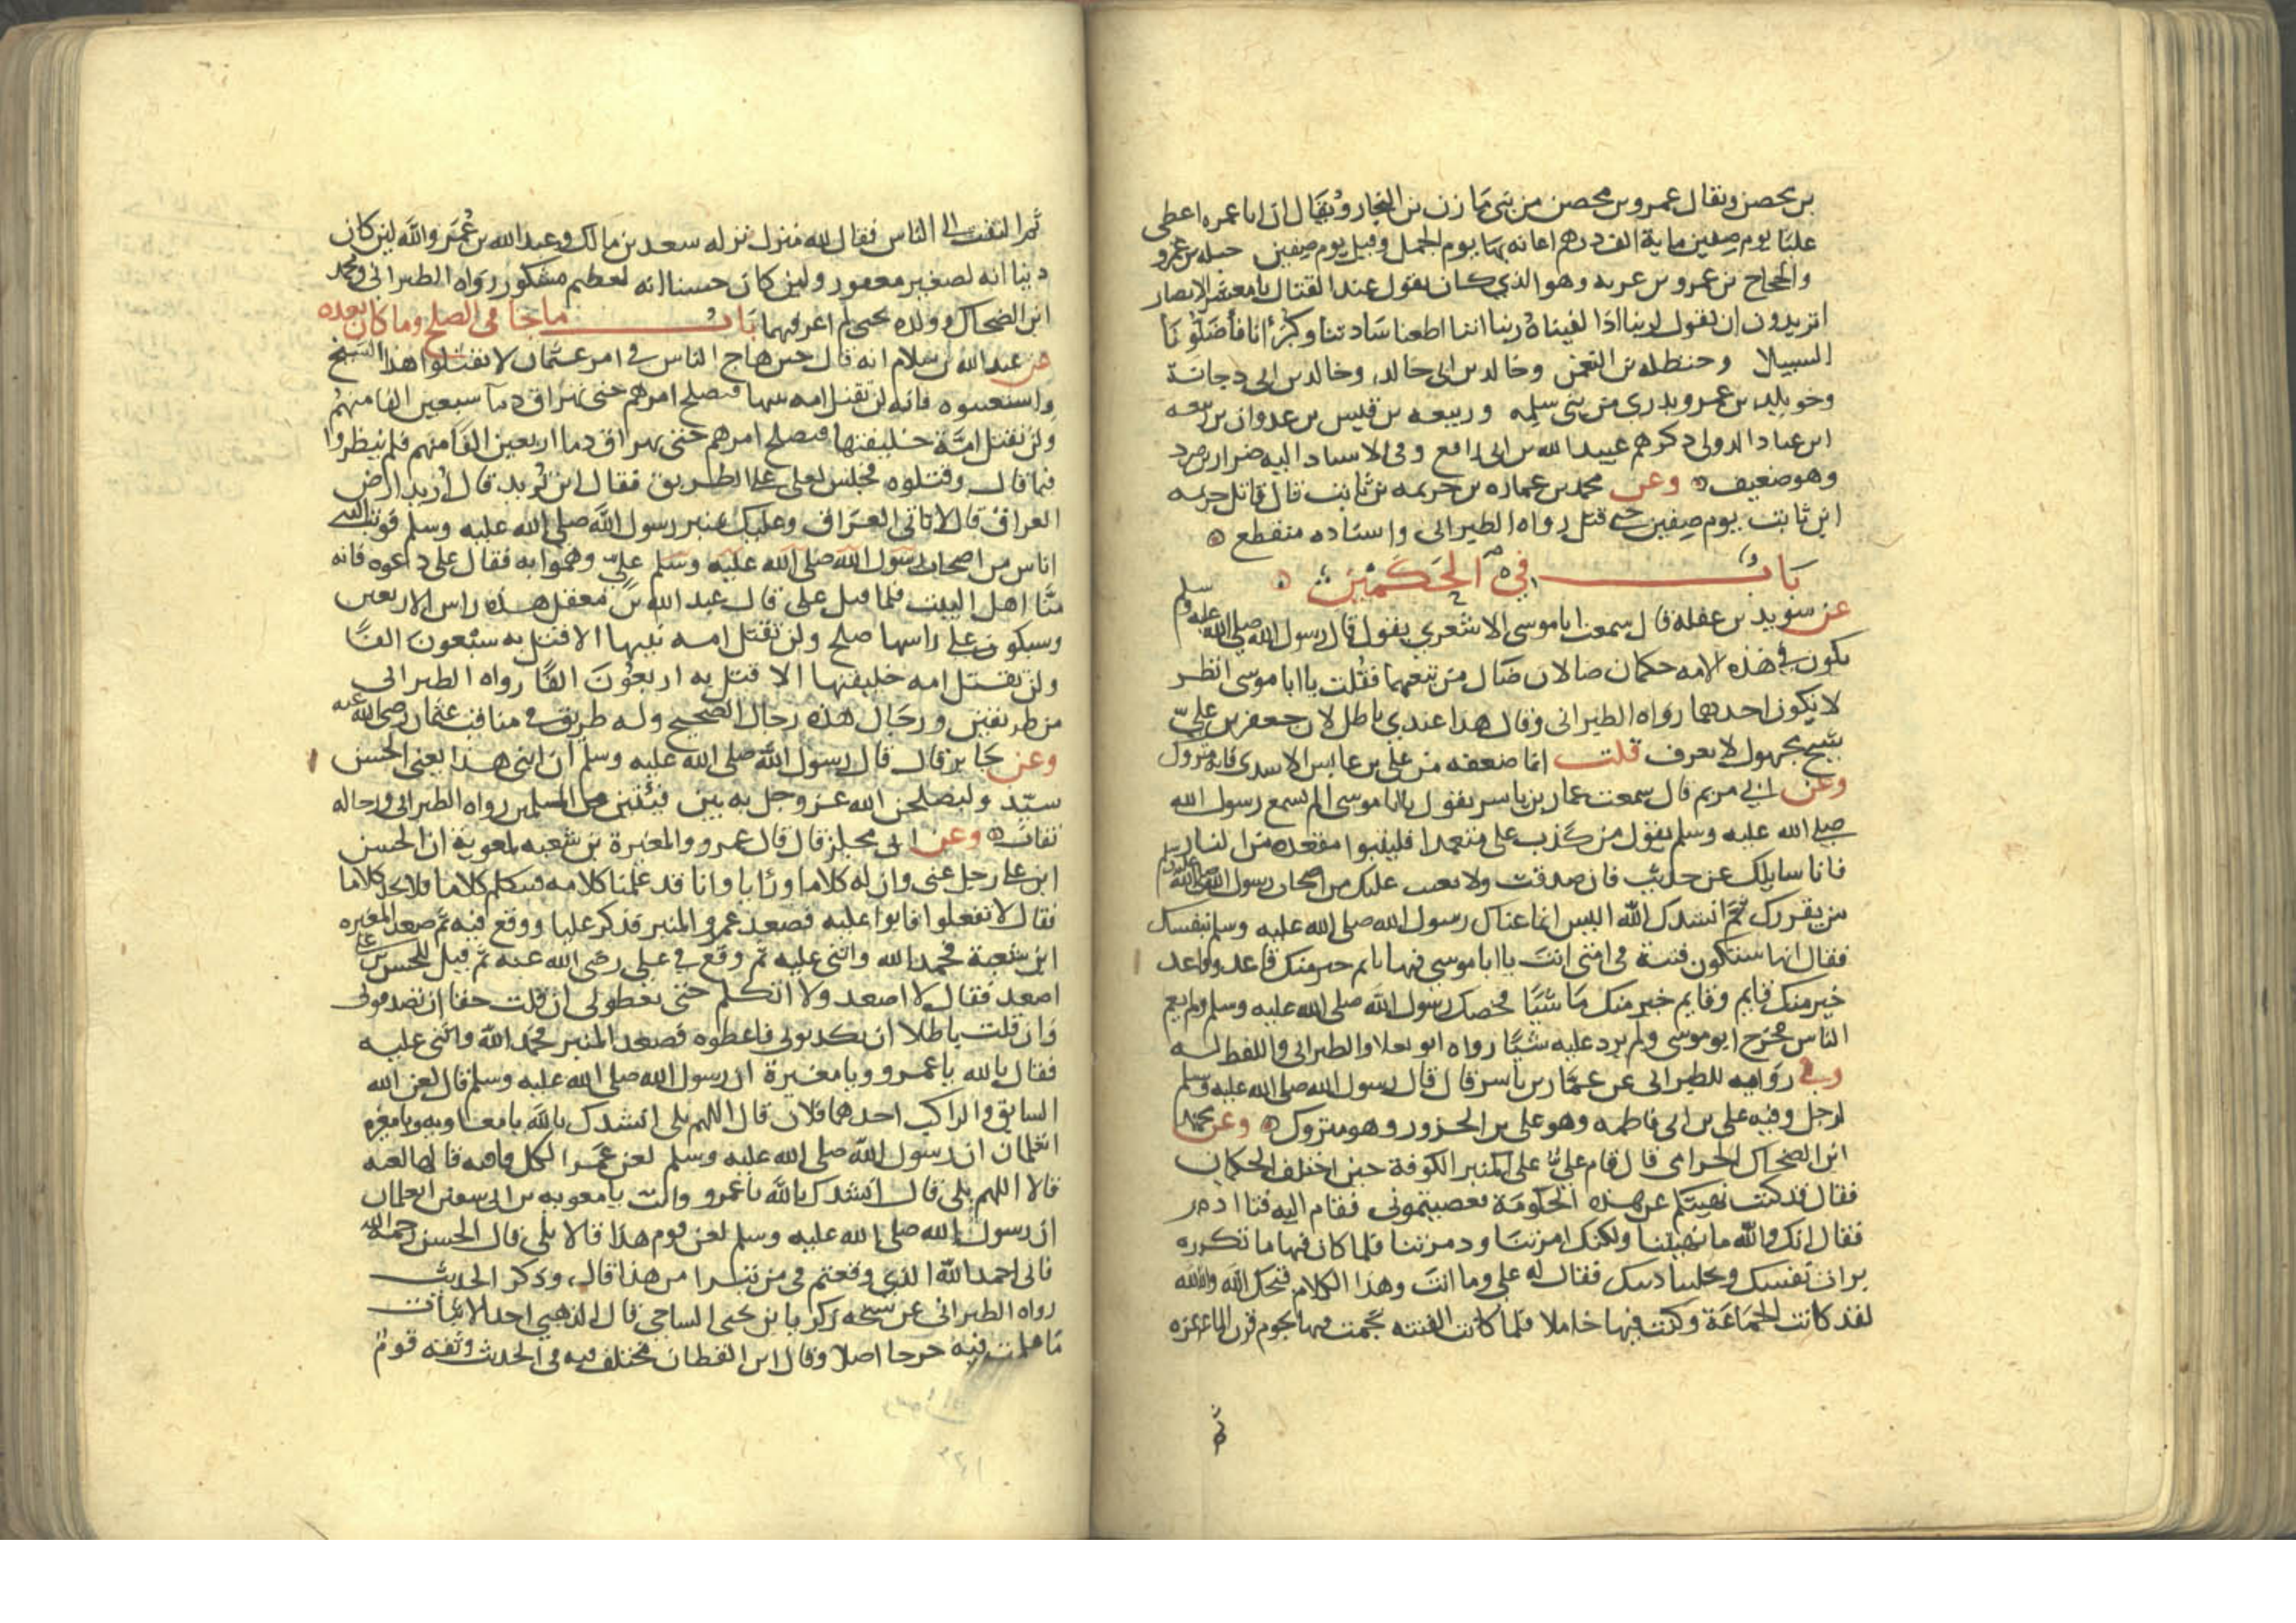 بن محصن ويقال عمرو بن محصن من بني مازن بن النجار ويقال ان ابا عمره اعطى
عليا يوم صفين ماية الف درهم اعانه بها يوم الجمل وقيل يوم صفين
والحجاج بن عمرو بن غزيه وهو الذي كان يقول عند القتال يا معشر الانصار
اتريدون ان نقول لربنا اذا لقيناه ربنا اننا اطعنا سادتنا وكبرانا فاضلونا
السبيلا وحنظله بن النعمن وخالد بن ابي خالد وخالد بن ابي دجانة
وخويلد بن عمرو بدري من بني سلمه وربيعه بن قيس بن عدوان بن ربيعه
ابن عباد الدولي ذكرهم عبيد الله بن ابي رافع وفي الاسناد اليه ضرار بن صرد
وهو ضعيف وعن محمد بن عماره بن خزيمه بن ثابت قال قاتل خزيمه
ابن ثابت يوم صفين حتى قتل رواه الطبراني واسناده منقطع
باب في الحكمين
عن سويد بن غفله قال سمعت ابا موسى الاشعري يقول قال رسول الله صلى الله عليه وسلم
يكون في هذه الامه حكمان ضالان ضال من تبعهما فقلت يا ابا موسى انظر
لا يكون احدهما رواه الطبراني وقال هذا عندي باطل لان جعفر بن علي
شيخ مجهول لا يعرف قلت انما ضعفه من علي بن عابس الاسدي فانه متروك
وعن ابي مريم قال سمعت عمار بن ياسر يقول يا ابا موسى الم تسمع رسول الله
صلى الله عليه وسلم يقول من كذب على متعمدا فليتبوا مقعده من النار
فانا سايلك عن حديث فان صدقت والا بعثت عليك من اصحاب رسول الله صلى الله عليه وسلم
من يقررك ثم انشدك الله اليس انما عناك رسول الله صلى الله عليه وسلم بنفسك
فقال انها ستكون فتنة في امتي انت يا ابا موسى فيها نايم خير منك قاعد وقاعد
خير منك قايم وقايم خير منك ماشيا فخصك رسول الله صلى الله عليه وسلم ولم يعم
الناس فخرج ابو موسى ولم يرد عليه شيا رواه ابو يعلا والطبراني واللفظ له
وفي روايه للطبراني عن عمار بن ياسر قال قال رسول الله صلى الله عليه وسلم
لرجل وفيه علي بن ابي فاطمه وهو علي بن الحزور وهو متروك وعن محمد
ابن الضحاك الحزامي قال قام علي على المنبر الكوفة حين اختلف الحكمان
فقال قد كنت نهيتكم عن هذه الحكومة فعصيتموني فقام اليه فتا ادم
فقال انك والله ما نهيتنا ولكنك امرتنا ودمرتنا فلما كان فيها ما تكره
برات نفسك ونحلتنا ذنبك فقال له علي وما انت وهذا الكلام قبحك الله والله
لقد كانت الجماعة وكنت فيها خاملا فلما كانت الفتنه نجمت فيها نجوم قرن الماعزه
ثم
ثم التفت الى الناس فقال لله منزل نزله سعد بن مالك وعبد الله بن عمر والله لين كان
ذنبا انه لصغير مغفور ولين كان حسنا انه لعظيم مشكور رواه الطبراني ومحمد
ابن الضحاك وولده يحيى لم اعرفهما باب ما جا في الصلح وما كان بعده
عن عبد الله بن سلام انه قال حين هاج الناس في امر عثمان لا تقتلوا هذا الشيخ
واستعتبوه فانه لن تقتل امه نبيها فيصلح امرهم حتى تهراق دما سبعين الفا منهم
ولن تقتل امة خليفتها فيصلح امرهم حتى تهراق دما اربعين الفا منهم فلم ينظروا
فيما قال وقتلوه فجلس لعلي على الطريق فقال اين تريد قال اريد ارض
العراق قال لا تاتي العراق وعليك بمنبر رسول الله صلى الله عليه وسلم فوثب اليه
اناس من اصحاب رسول الله صلى الله عليه وسلم علي وهموا به فقال علي دعوه فانه
منا اهل البيت فلما قتل علي قال عبد الله بن معقل هذه راس الاربعين
وسيكون على راسها صلح ولن تقتل امه نبيها الا قتل به سبعون الفا
ولن تقتل امه خليفتها الا قتل به اربعون الفا رواه الطبراني
من طريقين ورجال هذه رجال الصحيح وله طريق في مناقب عثمان رضي الله عنه
وعن جابر قال قال رسول الله صلى الله عليه وسلم ان ابني هذا يعني الحسن
سيد وليصلحن الله عز وجل به بين فيتين من المسلمين رواه الطبراني ورجاله
ثقات وعن ابي مجلز قال قال عمرو والمغيرة بن شعبه لمعوية ان الحسن
ابن علي رجل عني وان له كلاما ورايا وانا قد علمنا كلامه فيتكلم كلاما فلا يجد كلاما
فقال لا تفعلوا فابوا عليه فصعد عمرو المنبر فذكر عليا ووقع فيه ثم صعد المغيره
ابن شعبة فحمد الله واثنى عليه ثم وقع في علي رضي الله عنه ثم قيل للحسن بن علي
اصعد فقال لا اصعد ولا اتكلم حتى تعطوني ان قلت حقا ان تصدقوني
وان قلت باطلا ان تكذبوني فاعطوه فصعد المنبر فحمد الله واثنى عليه
فقال بالله يا عمرو ويا مغيرة ان رسول الله صلى الله عليه وسلم قال لعن الله
السايق والراكب احدهما فلان قال اللهم بلى انشدك بالله يا معاويه ويا مغيره
اتعلمان ان رسول الله صلى الله عليه وسلم لعن عمرا بكل قافيه قالها لعنه
قالا اللهم بلى قال انشدك بالله يا عمرو وانت يا معويه بن ابي سفين اتعلمان
ان رسول الله صلى الله عليه وسلم لعن قوم هذا قالا بلى قال الحسن رحمه الله
فاني احمد الله الذي وقعتم في من تبرا من هذا قال وذكر الحديث
رواه الطبراني عن شيخه زكريا بن يحيى الساجي قال الذهبي احد الاثبات
ما علمت فيه جرحا اصلا وقال ابن القطان مختلف فيه في الحديث وثقه قوم